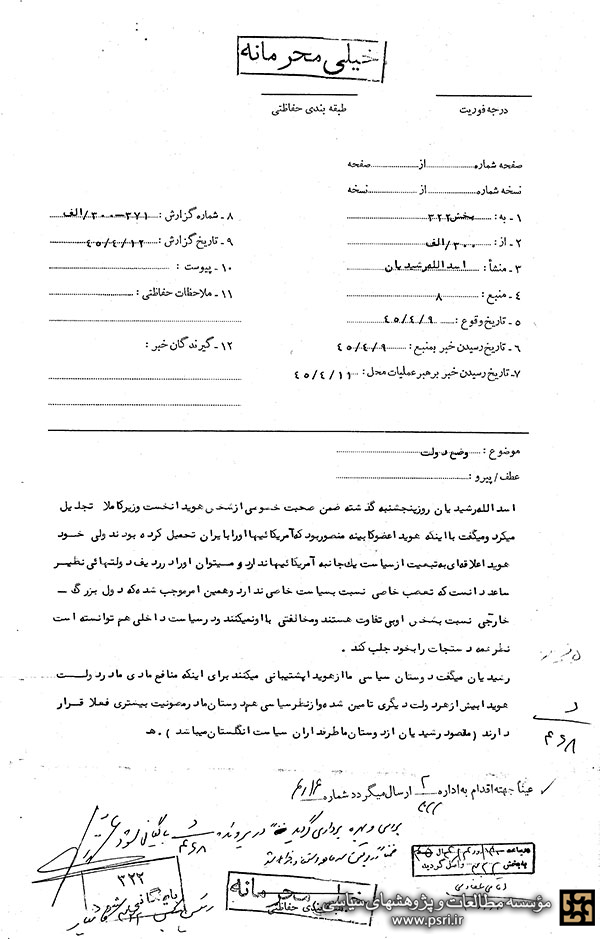 خیلی محرمانه
درجه فوریت
طبقه بندی حفاظتی
صفحه شماره از صفحه
نسخه شماره از نسخه
۱ - به : بخش ۳۲۲
۲ - از : ۳۰۰/الف
۳ - منشأ : اسداله رشیدیان
۴ - منبع : ۸
۵ - تاریخ وقوع : ۴۵/۴/۹
۶ - تاریخ رسیدن خبر بمنبع : ۴۵/۴/۹
۷ - تاریخ رسیدن خبر برهبر عملیات محل : ۴۵/۴/۱۱
۸ - شماره گزارش : ۳۷۱-۳۰۰/الف
۹ - تاریخ گزارش : ۴۵/۴/۱۲
۱۰ - پیوست :
۱۱ - ملاحظات حفاظتی :
۱۲ - گیرندگان خبر :
موضوع : وضع دولت
عطف/پیرو :
اسداله رشیدیان روز پنجشنبه گذشته ضمن صحبت خصوصی از شخص هویدا نخست وزیر کاملا تجلیل
میکرد و میگفت با اینکه هویدا عضو کابینه منصور بود که آمریکائیها او را بایران تحمیل کرده بودند ولی خود
هویدا علاقه‌ای به تبعیت از سیاست یک جانبه آمریکائیها ندارد و میتوان او را در ردیف دولتهائی نظیر
ساعد دانست که تعصب خاصی نسبت بسیاست خاصی ندارد و همین امر موجب شده که دول بزرگ -
خارجی نسبت بشخص او بی تفاوت هستند و مخالفتی با او نمیکنند و در سیاست داخلی هم توانسته است
نظر همه دستجات را بخود جلب کند .
رشیدیان میگفت دوستان سیاسی ما از هویدا پشتیبانی میکنند برای اینکه منافع مادی ما در دولت
هویدا بیش از هر دولت دیگری تامین شده و از نظر سیاسی هم دوستان ما در مصونیت بیشتری فعلا قرار
دارند ( مقصود رشیدیان از دوستان ما طرفداران سیاست انگلستان میباشد ) . هـ
د
۴۶۸
عیناً جهته اقدام به اداره ۲ ارسال میگردد شماره
بررسی و بهره برداری گردید در پرونده د ۴۶۸ بایگانی شود
۳۲۲
خیلی محرمانه
طبقه بندی حفاظتی
مؤسسه مطالعات و پژوهشهای سیاسی
www.psri.ir